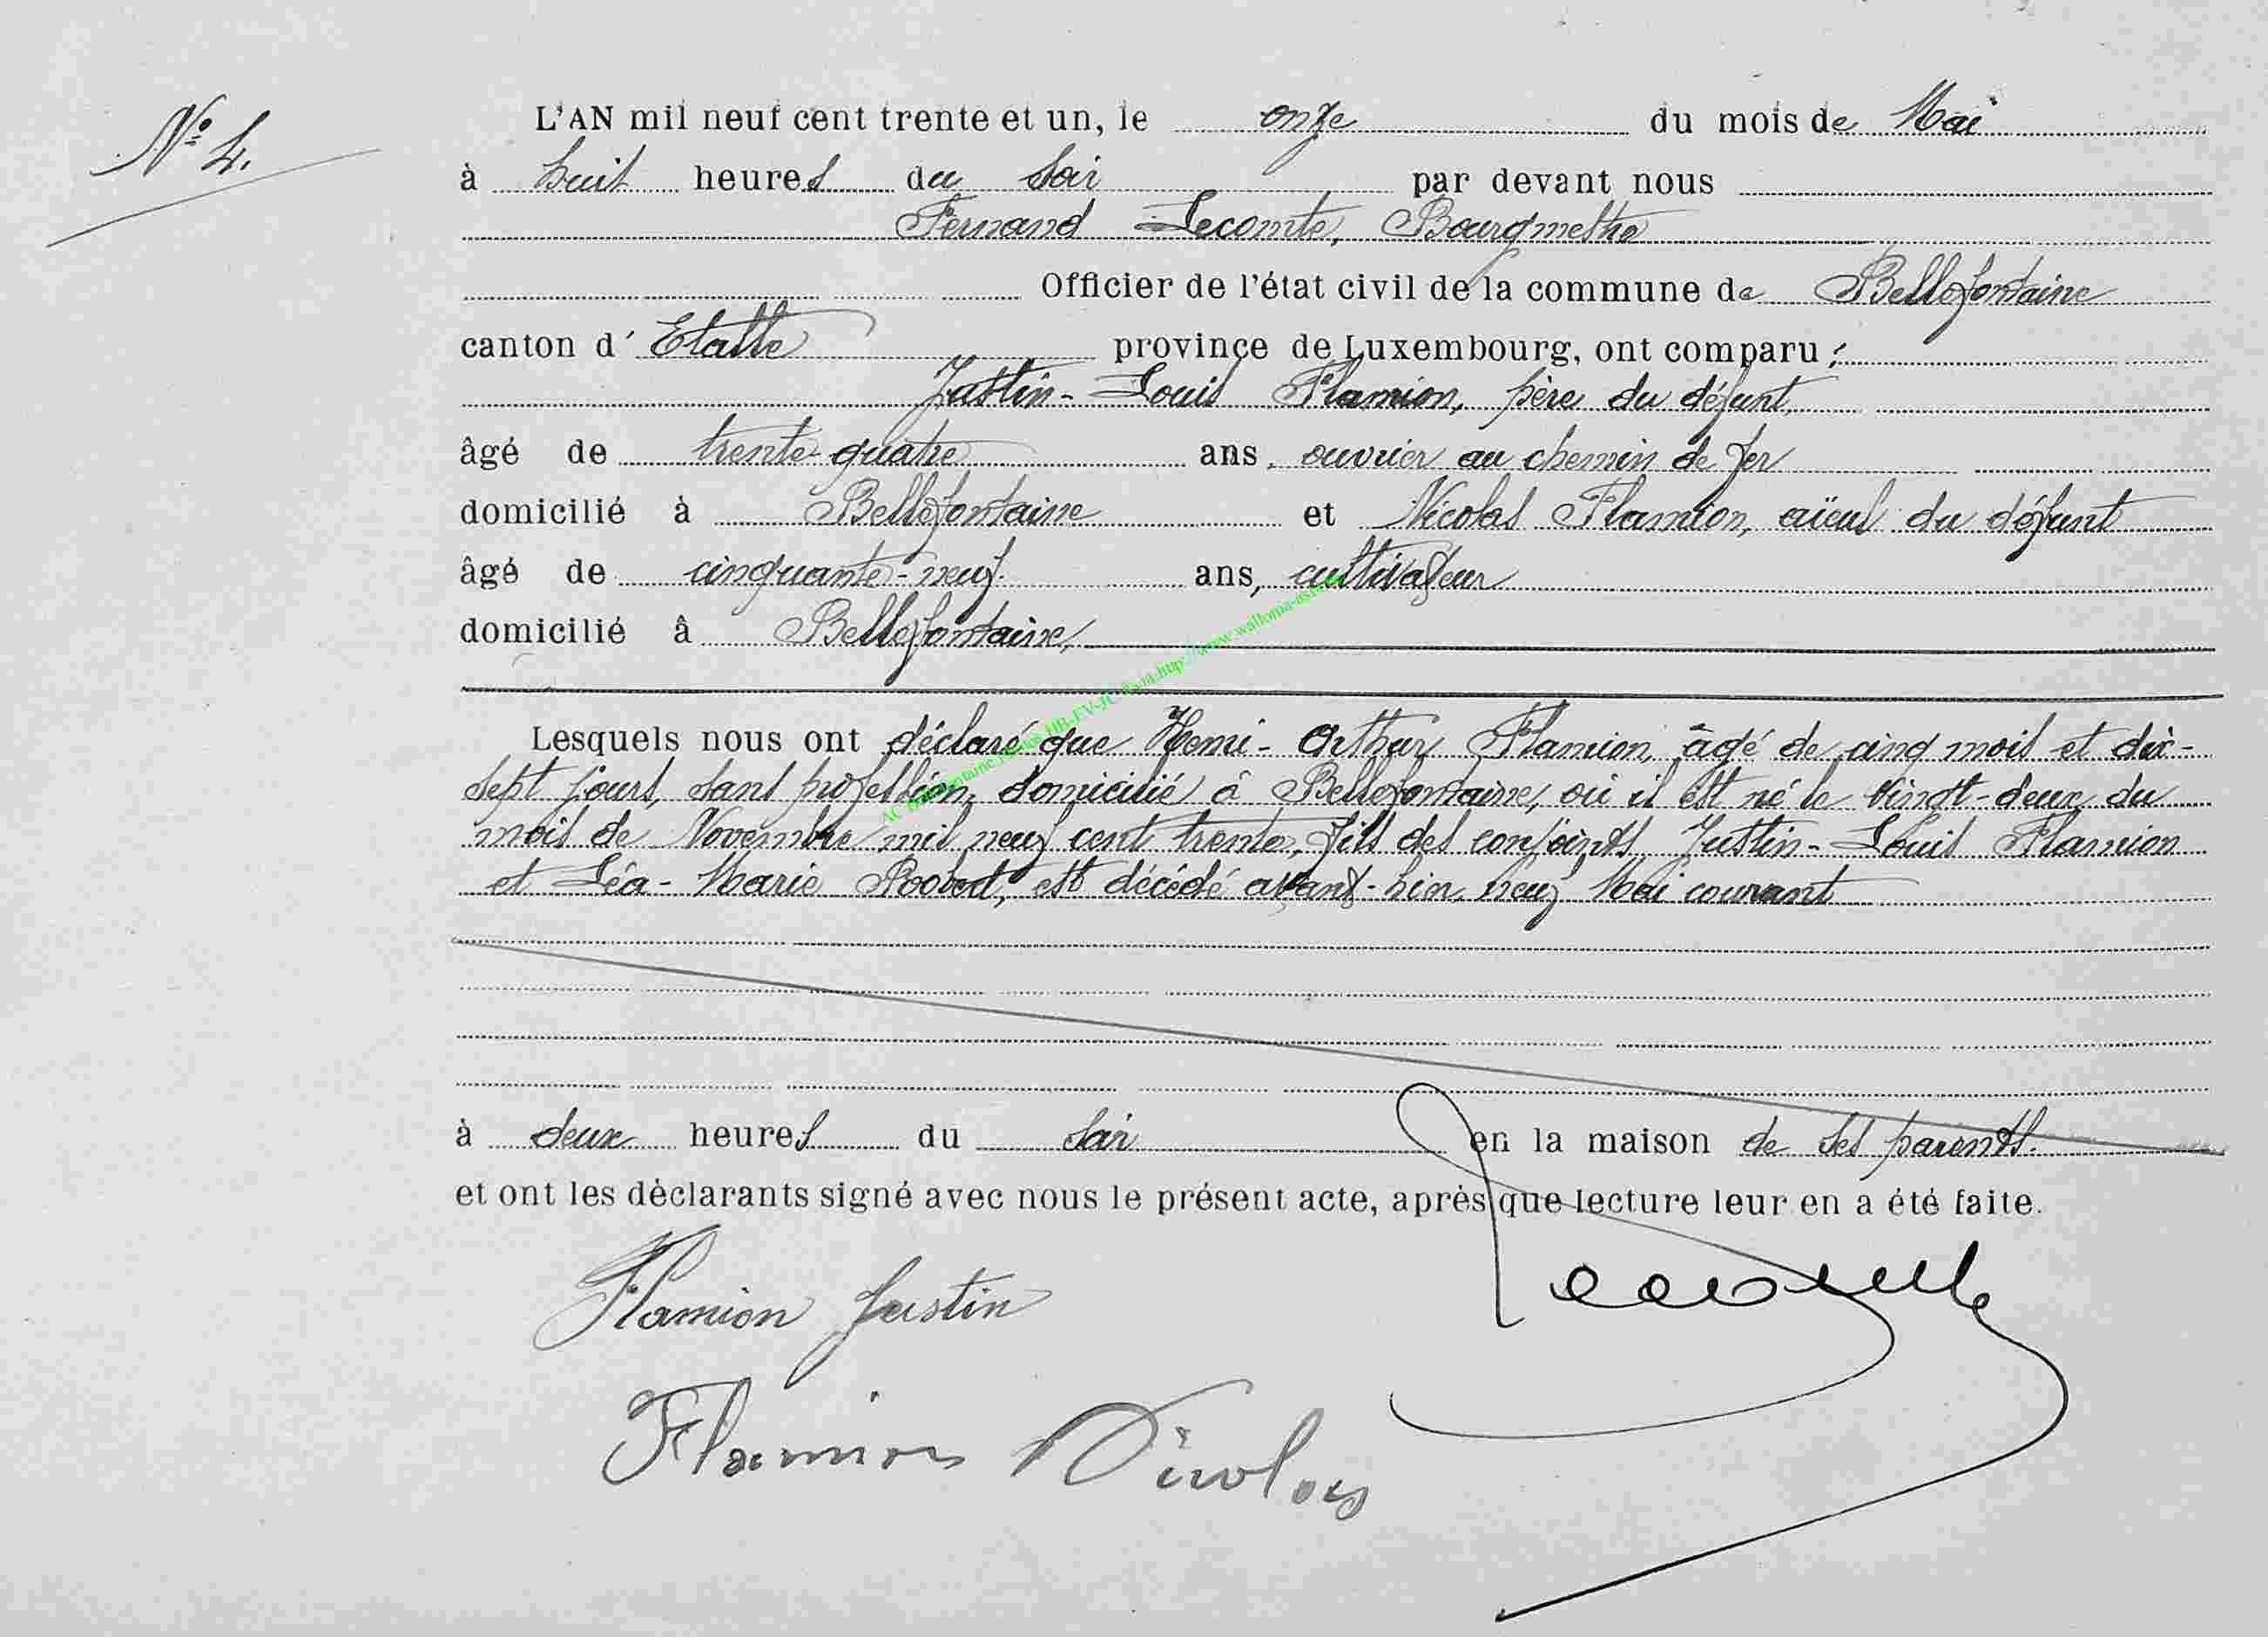 N° 4.
L'AN mil neuf cent trente et un, le onze du mois de Mai
à huit heures du soir par devant nous
Fernand Lecomte, Bourgmestre
Officier de l'état civil de la commune de Bellefontaine
canton d' Etalle province de Luxembourg, ont comparu :
Justin-Louis Flamion, père du défunt
âgé de trente-quatre ans, ouvrier au chemin de fer
domicilié à Bellefontaine et Nicolas Flamion, aïeul du défunt
âgé de cinquante-neuf ans, cultivateur
domicilié à Bellefontaine,
Lesquels nous ont déclaré que Henri-Arthur Flamion, âgé de cinq mois et dix-
sept jours, sans profession, domicilié à Bellefontaine, où il est né le vingt-deux du
mois de Novembre mil neuf cent trente, fils des conjoints Justin-Louis Flamion
et Léa-Marie est décédé avant-hier, neuf Mai courant
à deux heures du soir en la maison de ses parents.
et ont les déclarants signé avec nous le présent acte, après que lecture leur en a été faite.
Flamion Justin
Lecomte
Flamion Nicolas